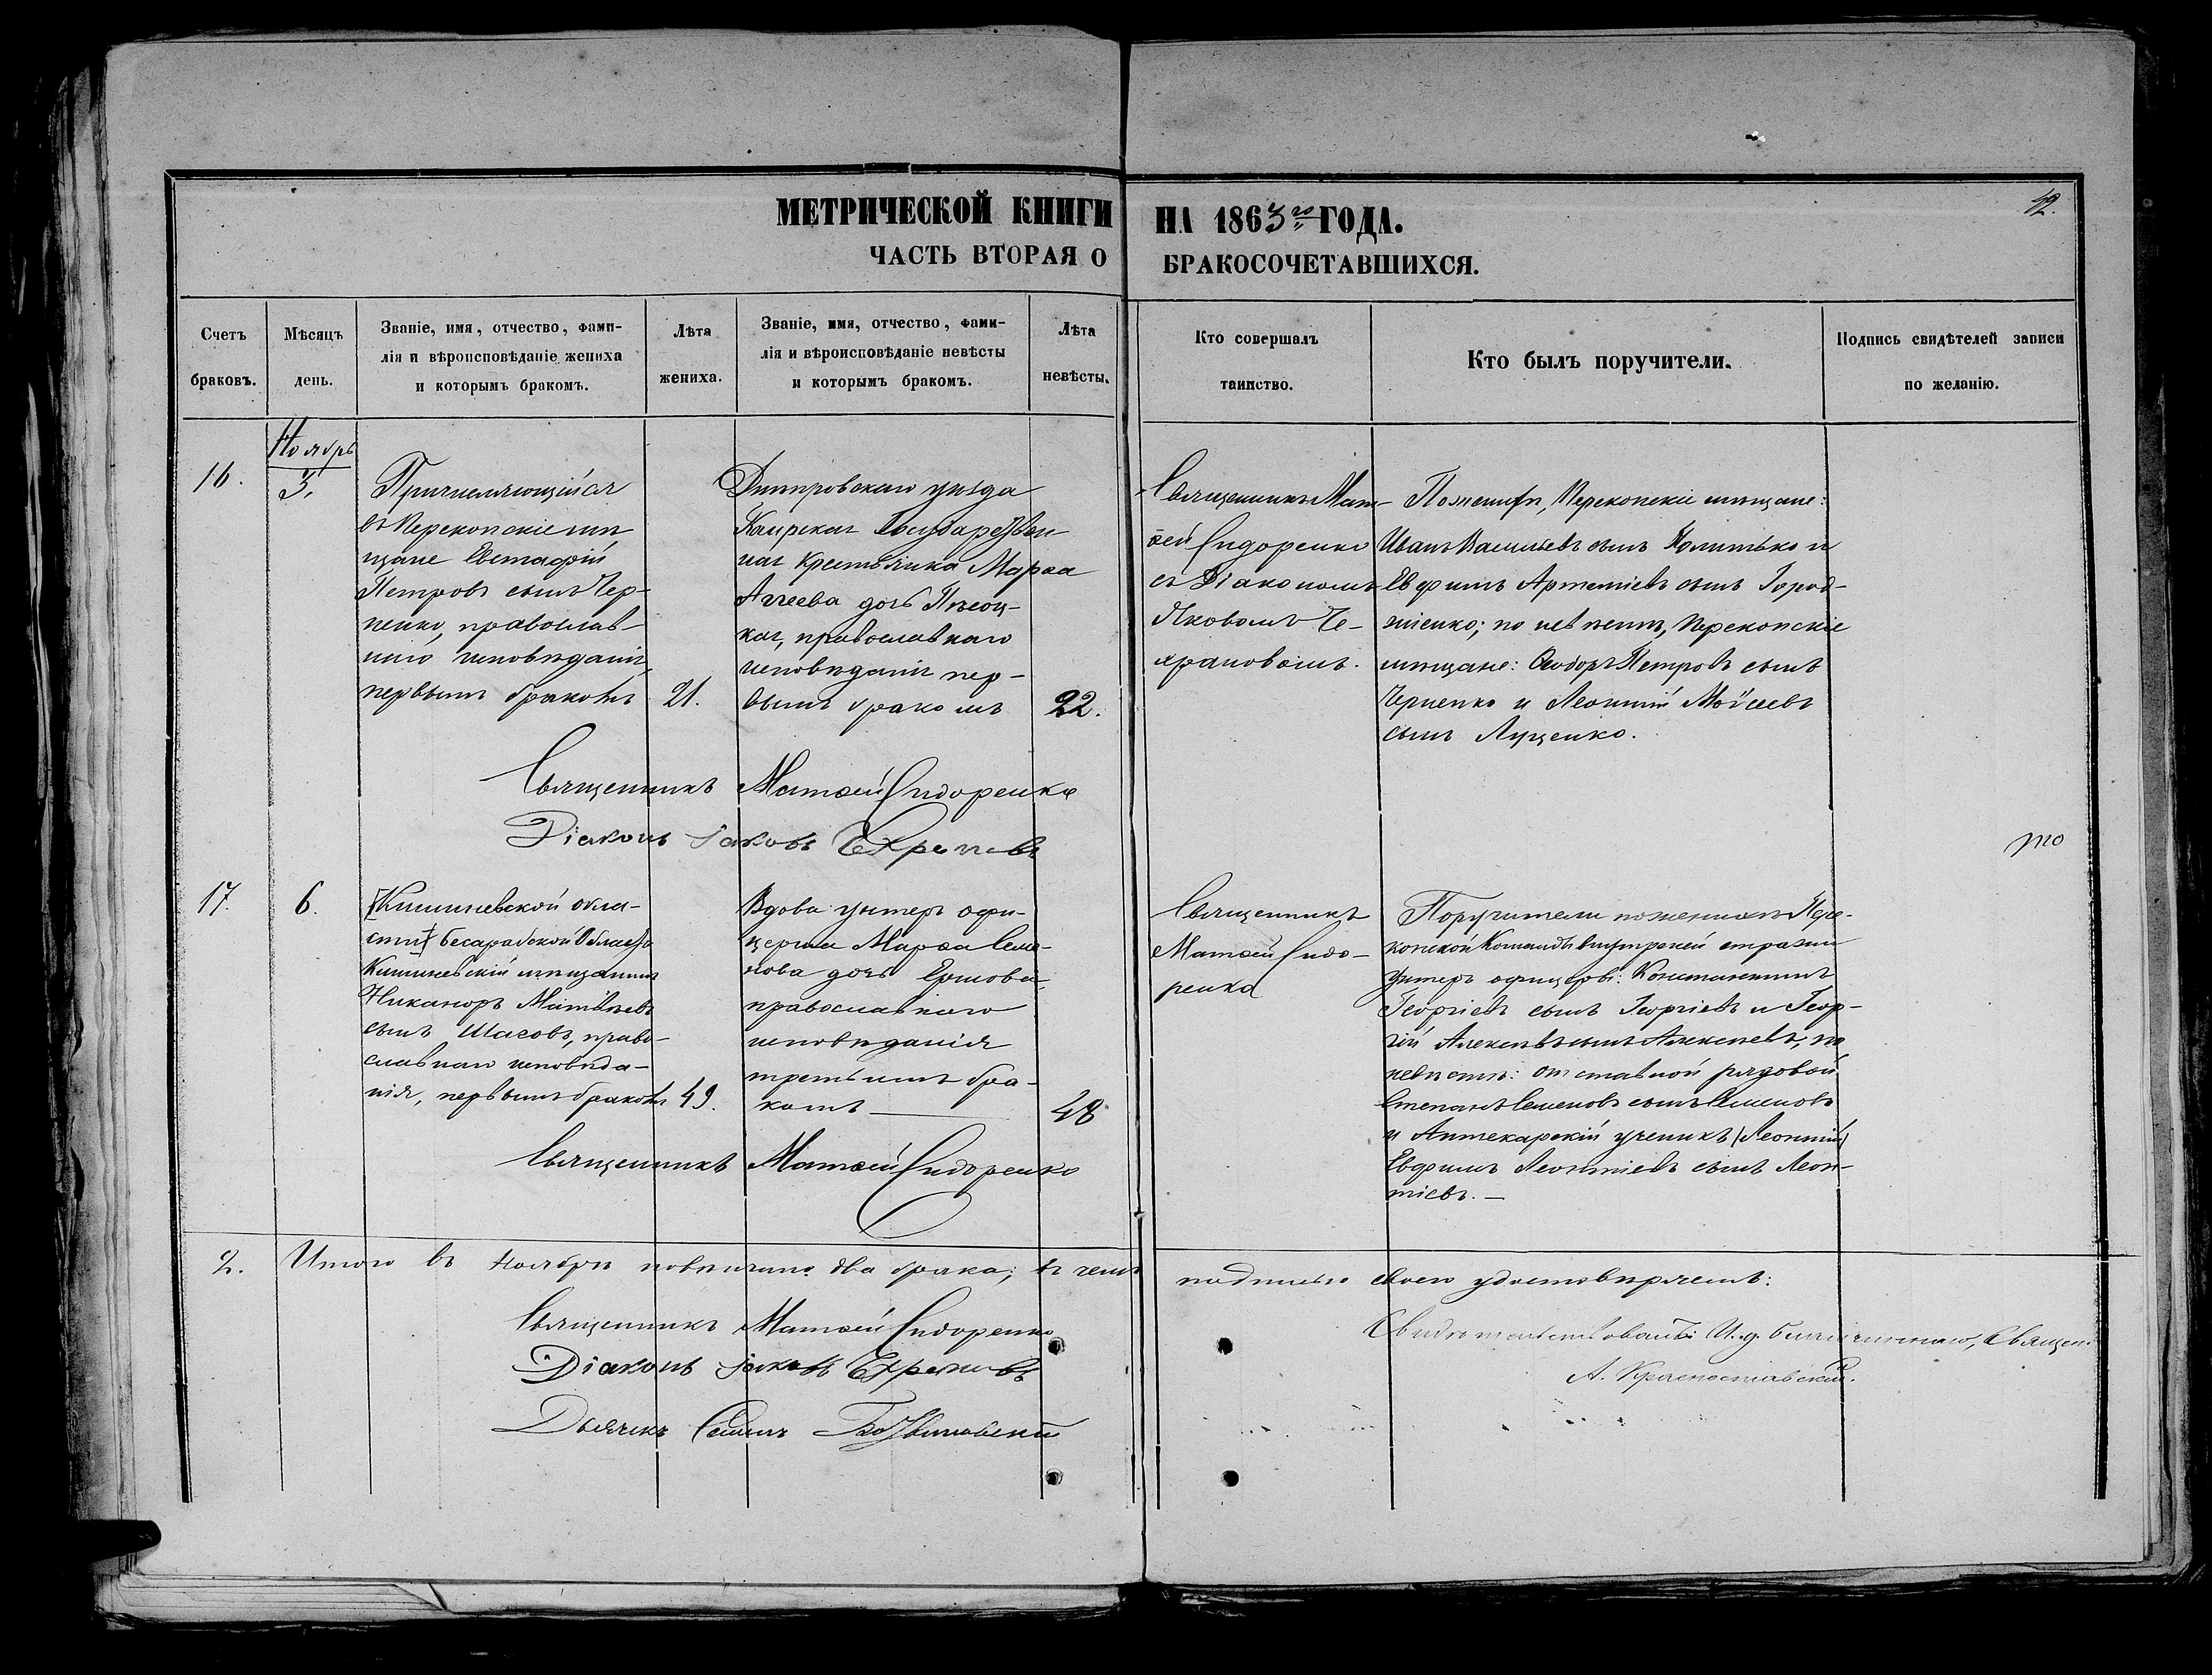 42.
МЕТРИЧЕСКОЙ КНИГИ НА 1863го ГОДА.
ЧАСТЬ ВТОРАЯ О БРАКОСОЧЕТАВШИХСЯ.
Счетъ браковъ.
Мѣсяцъ день.
Званіе, имя, отчество, фами-
лія и вѣроисповѣданіе жениха
и которымъ бракомъ.
Лѣта жениха.
Званіе, имя, отчество, фами-
лія и вѣроисповѣданіе невѣсты
и которымъ бракомъ.
Лѣта невѣсты.
Кто совершалъ
таинство.
Кто былъ поручители.
Подпись свидѣтелей записи
по желанію.
16.
Ноябрь
3.
Причисляющійся
въ Перекопскіе мѣ
щане Евстафій
Петровъ сынъ Чер-
ненко, православ-
наго исповѣданія,
первымъ бракомъ
21.
Днѣпровскаго уѣзда
Каирская Государствен-
ная крестьянка Марѳа
Аггеева дочь
кая, православнаго
исповѣданія пер-
вымъ бракомъ
22.
Священникъ Мат-
ѳей Сидоренко
съ Діакономъ
Яковомъ Че-
храновымъ.
По женихѣ, Перекопскіе мѣщане:
Иванъ Васильевъ сынъ и
Евфимъ Артеміевъ сынъ Город-
ніенко; по невѣстѣ, Перекопскіе
мѣщане: Ѳеодоръ Петровъ сынъ
Черненко и Леонтій Моѵсеевъ
сынъ Луценко.
Священникъ Матѳей Сидоренко
Діаконъ Іаковъ
то
17.
6.
[Кишиневской обла-
сти] Бесарабской Области
Кишиневскій мѣщанинъ
Никаноръ Матвѣевъ
сынъ Шасовъ, право-
славнаго исповѣда-
нія, первымъ бракомъ
49.
Вдова унтеръ офи-
церша Марѳа Семе-
нова дочь Ершова,
православнаго
исповѣданія
третьимъ бра-
комъ —
48
Священникъ
Матѳей Сидо-
ренко
Поручители по женихѣ Пере-
копской Команды внутренней стражи
унтеръ офицеры: Константинъ
Георгіевъ сынъ Георгіевъ и Геор-
гій Алексѣевъ сынъ Алексѣевъ, по
невѣстѣ: отставной рядовой
Степанъ Семеновъ сынъ Семеновъ
и Аптекарскій ученикъ (Леонтій)
Евфимъ Леонтіевъ сынъ Леон-
тіевъ. —
Священникъ Матѳей Сидоренко
2. Итого въ Ноябрѣ повѣнчано два брака; въ чемъ подписью своею удостовѣряемъ:
Священникъ Матѳей Сидоренко
Діаконъ Іаковъ
Дьячекъ
Свидѣтельствовалъ: И. д. Благочиннаго, Священ.
А. Краснославскій.